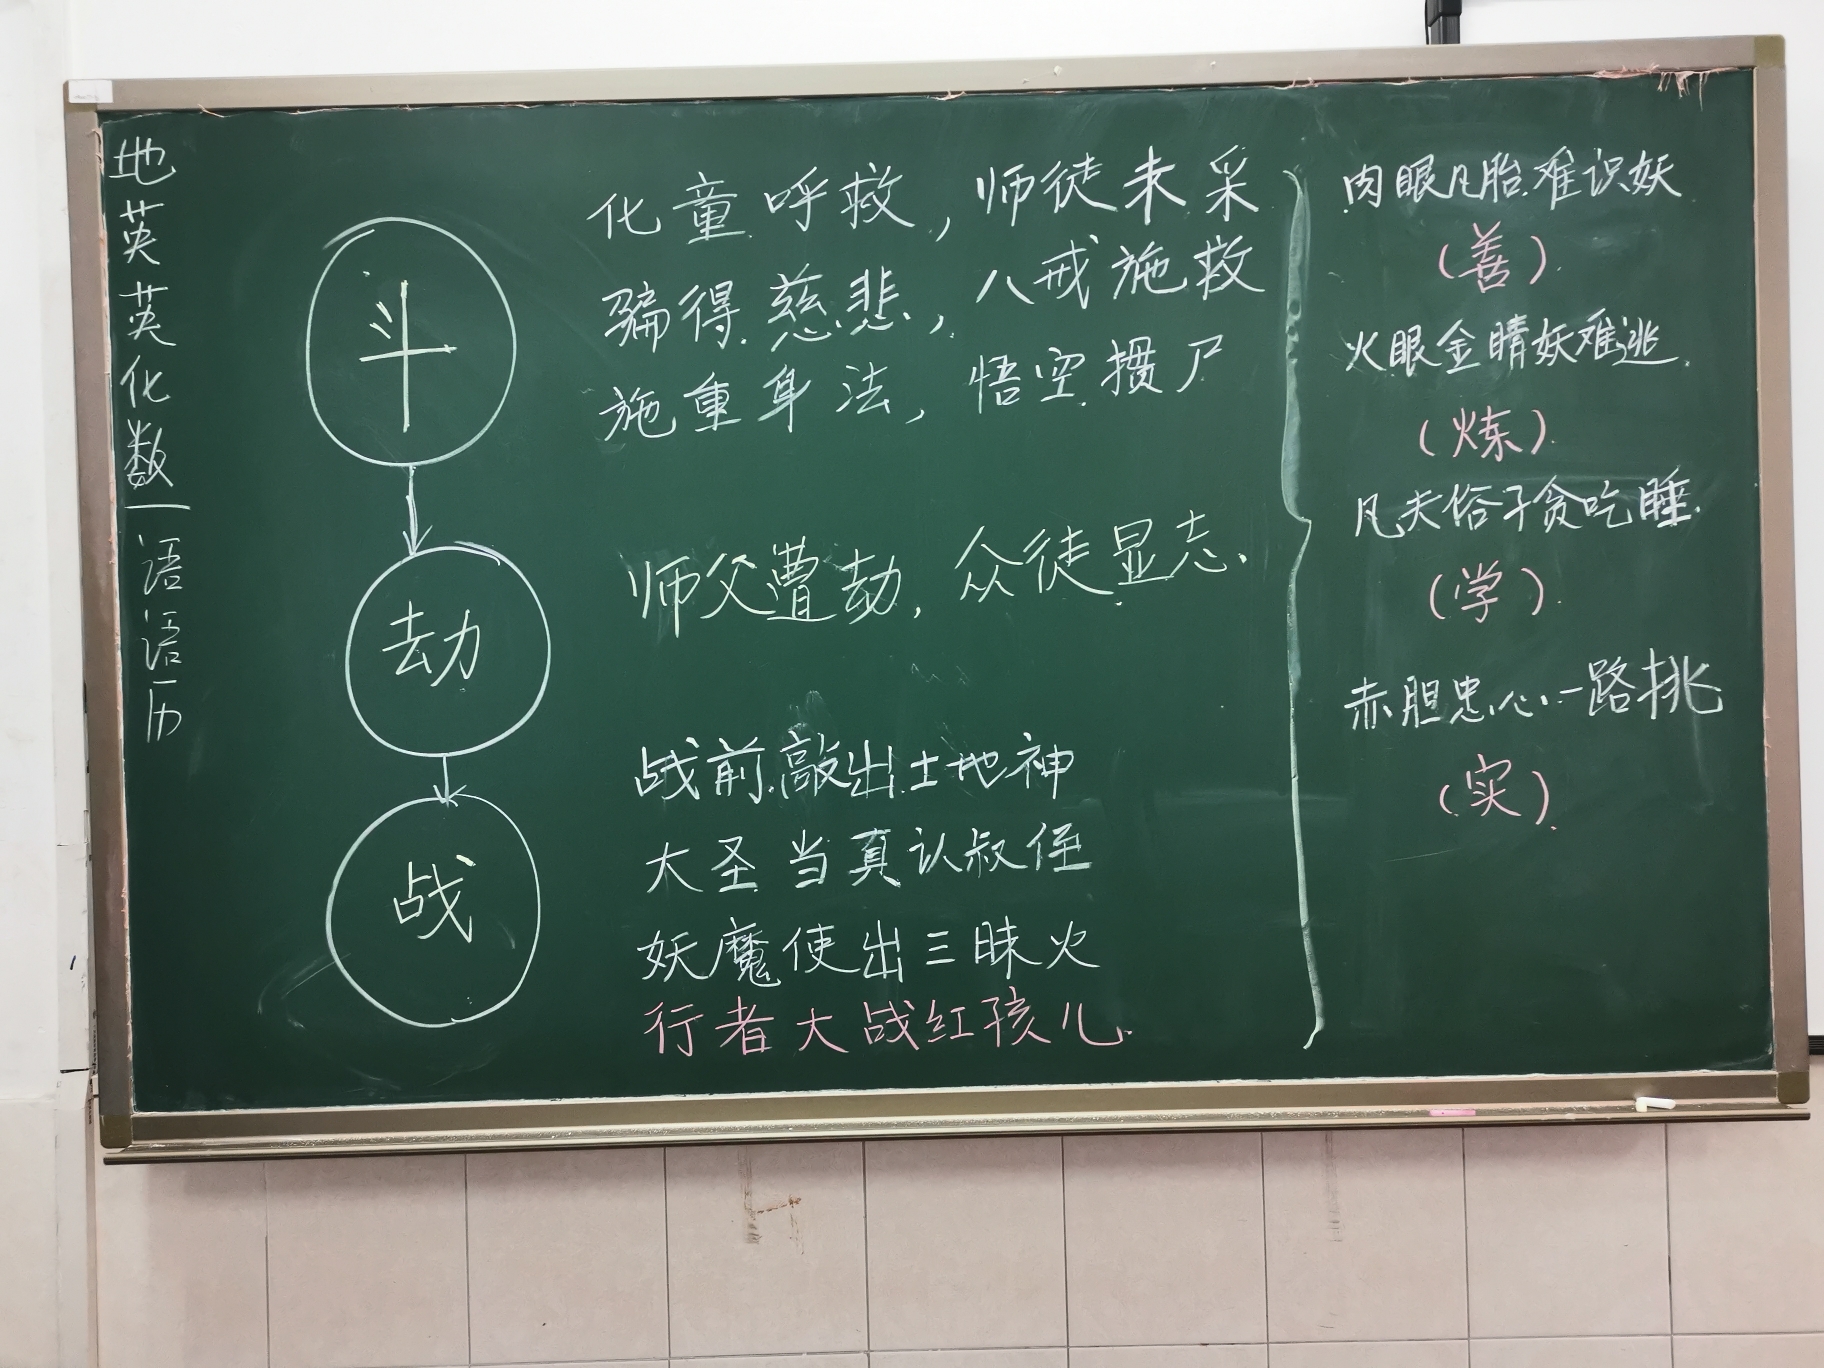 地英英化数一语语历
斗
化童呼救，师徒未采
骗得慈悲，八戒施救
施重身法，悟空掼尸
劫
师父遭劫，众徒显志.
战
战前敲出土地神
大圣当真认叔侄
妖魔使出三昧火
行者大战红孩儿.
肉眼凡胎难识妖
（善）
火眼金睛妖难逃.
（炼）
凡夫俗子贪吃睡.
（学）
赤胆忠心一路挑
（实）